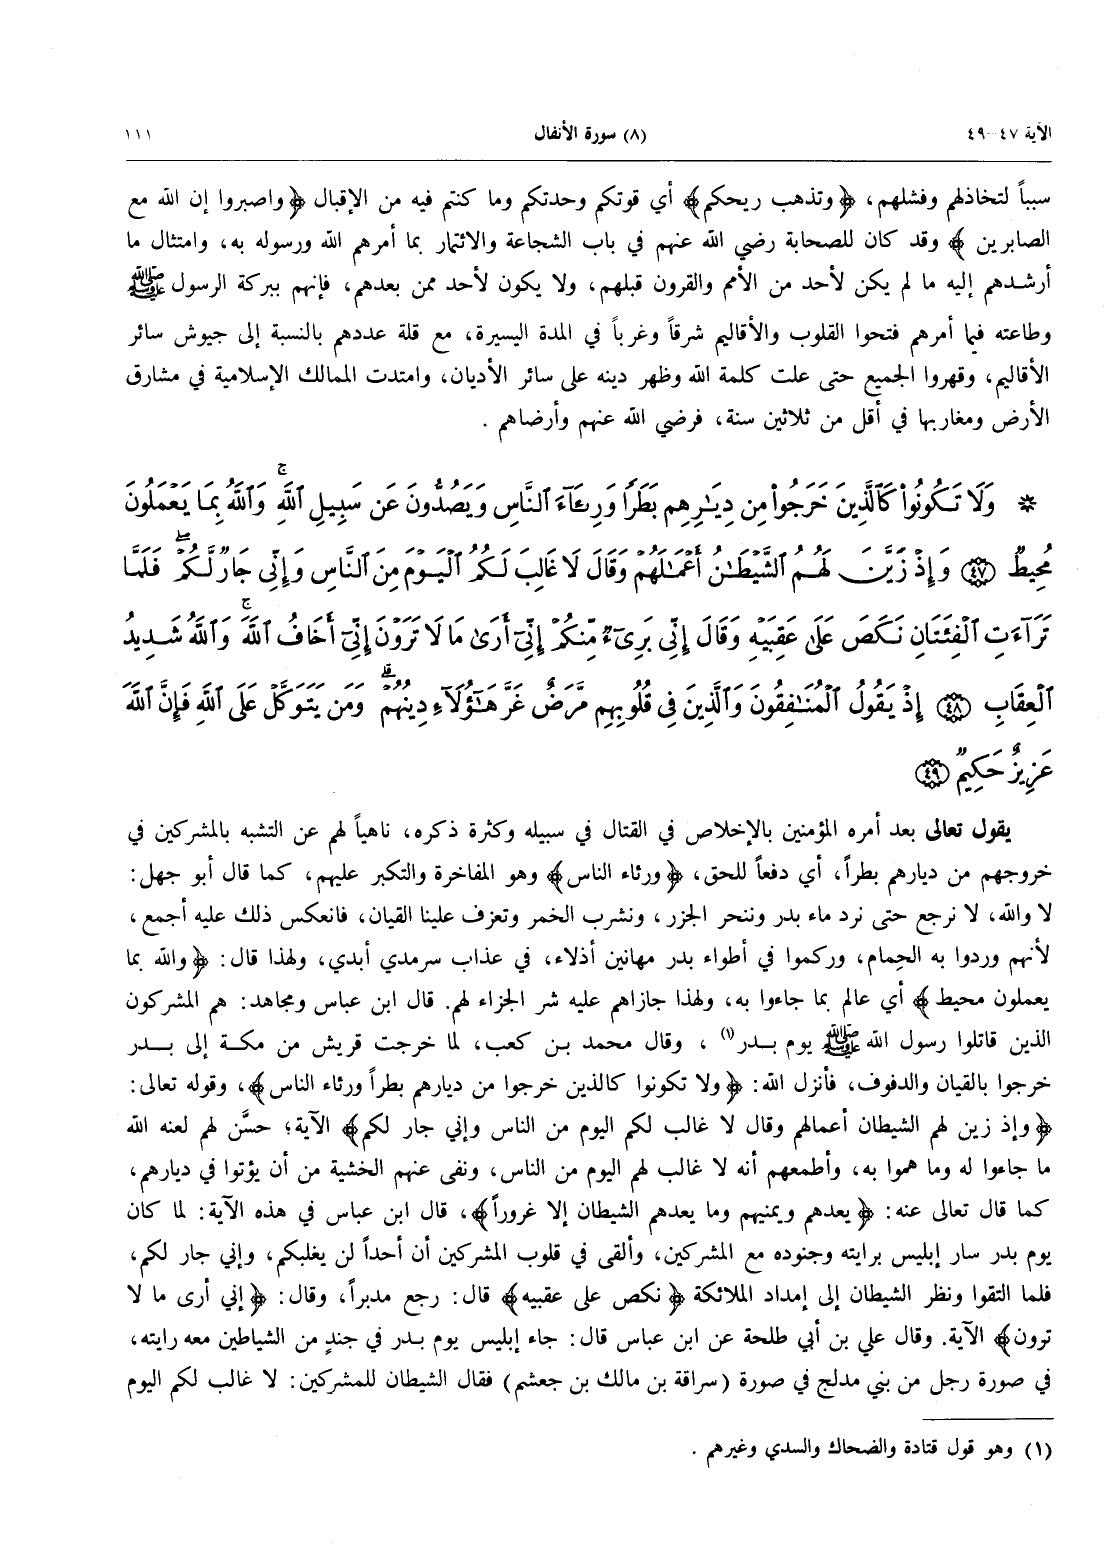 الآية ٤٧-٤٩ (٨) سورة الأنفال ١١١
سبباً لتخاذلهم وفشلهم، ﴿وتذهب ريحكم﴾ أي قوتكم وحدتكم وما كنتم فيه من الإقبال ﴿واصبروا إن الله مع
الصابرين﴾ وقد كان للصحابة رضي الله عنهم في باب الشجاعة والائتمار بما أمرهم الله ورسوله به، وامتثال ما
أرشدهم إليه ما لم يكن لأحد من الأمم والقرون قبلهم، ولا يكون لأحد ممن بعدهم، فإنهم ببركة الرسول ﷺ
وطاعته فيما أمرهم فتحوا القلوب والأقاليم شرقاً وغرباً في المدة اليسيرة، مع قلة عددهم بالنسبة إلى جيوش سائر
الأقاليم، وقهروا الجميع حتى علت كلمة الله وظهر دينه على سائر الأديان، وامتدت الممالك الإسلامية في مشارق
الأرض ومغاربها في أقل من ثلاثين سنة، فرضي الله عنهم وأرضاهم .
* وَلَا تَكُونُوا۟ كَٱلَّذِينَ خَرَجُوا۟ مِن دِيَـٰرِهِم بَطَرًا وَرِئَآءَ ٱلنَّاسِ وَيَصُدُّونَ عَن سَبِيلِ ٱللَّهِ ۚ وَٱللَّهُ بِمَا يَعْمَلُونَ
مُحِيطٌ ﴿٤٧﴾ وَإِذْ زَيَّنَ لَهُمُ ٱلشَّيْطَـٰنُ أَعْمَـٰلَهُمْ وَقَالَ لَا غَالِبَ لَكُمُ ٱلْيَوْمَ مِنَ ٱلنَّاسِ وَإِنِّى جَارٌ لَّكُمْ ۖ فَلَمَّا
تَرَآءَتِ ٱلْفِئَتَانِ نَكَصَ عَلَىٰ عَقِبَيْهِ وَقَالَ إِنِّى بَرِىٓءٌ مِّنكُمْ إِنِّىٓ أَرَىٰ مَا لَا تَرَوْنَ إِنِّىٓ أَخَافُ ٱللَّهَ ۚ وَٱللَّهُ شَدِيدُ
ٱلْعِقَابِ ﴿٤٨﴾ إِذْ يَقُولُ ٱلْمُنَـٰفِقُونَ وَٱلَّذِينَ فِى قُلُوبِهِم مَّرَضٌ غَرَّ هَـٰٓؤُلَآءِ دِينُهُمْ ۗ وَمَن يَتَوَكَّلْ عَلَى ٱللَّهِ فَإِنَّ ٱللَّهَ
عَزِيزٌ حَكِيمٌ ﴿٤٩﴾
يقول تعالى بعد أمره المؤمنين بالإخلاص في القتال في سبيله وكثرة ذكره، ناهياً لهم عن التشبه بالمشركين في
خروجهم من ديارهم بطراً، أي دفعاً للحق، ﴿ورئاء الناس﴾ وهو المفاخرة والتكبر عليهم، كما قال أبو جهل:
لا والله، لا نرجع حتى نرد ماء بدر وننحر الجزر، ونشرب الخمر وتعزف علينا القيان، فانعكس ذلك عليه أجمع،
لأنهم وردوا به الحِمام، وركموا في أطواء بدر مهانين أذلاء، في عذاب سرمدي أبدي، ولهذا قال: ﴿والله بما
يعملون محيط﴾ أي عالم بما جاءوا به، ولهذا جازاهم عليه شر الجزاء لهم. قال ابن عباس ومجاهد: هم المشركون
الذين قاتلوا رسول الله ﷺ يوم بدر(١) ، وقال محمد بن كعب، لما خرجت قريش من مكة إلى بدر
خرجوا بالقيان والدفوف، فأنزل الله: ﴿ولا تكونوا كالذين خرجوا من ديارهم بطراً ورئاء الناس﴾، وقوله تعالى:
﴿وإذ زين لهم الشيطان أعمالهم وقال لا غالب لكم اليوم من الناس وإني جار لكم﴾ الآية؛ حسَّن لهم لعنه الله
ما جاءوا له وما هموا به، وأطمعهم أنه لا غالب لهم اليوم من الناس، ونفى عنهم الخشية من أن يؤتوا في ديارهم،
كما قال تعالى عنه: ﴿يعدهم ويمنيهم وما يعدهم الشيطان إلا غروراً﴾، قال ابن عباس في هذه الآية: لما كان
يوم بدر سار إبليس برايته وجنوده مع المشركين، وألقى في قلوب المشركين أن أحداً لن يغلبكم، وإني جار لكم،
فلما التقوا ونظر الشيطان إلى إمداد الملائكة ﴿نكص على عقبيه﴾ قال: رجع مدبراً، وقال: ﴿إني أرى ما لا
ترون﴾ الآية. وقال علي بن أبي طلحة عن ابن عباس قال: جاء إبليس يوم بدر في جندٍ من الشياطين معه رايته،
في صورة رجل من بني مدلج في صورة (سراقة بن مالك بن جعشم) فقال الشيطان للمشركين: لا غالب لكم اليوم
(١) وهو قول قتادة والضحاك والسدي وغيرهم .